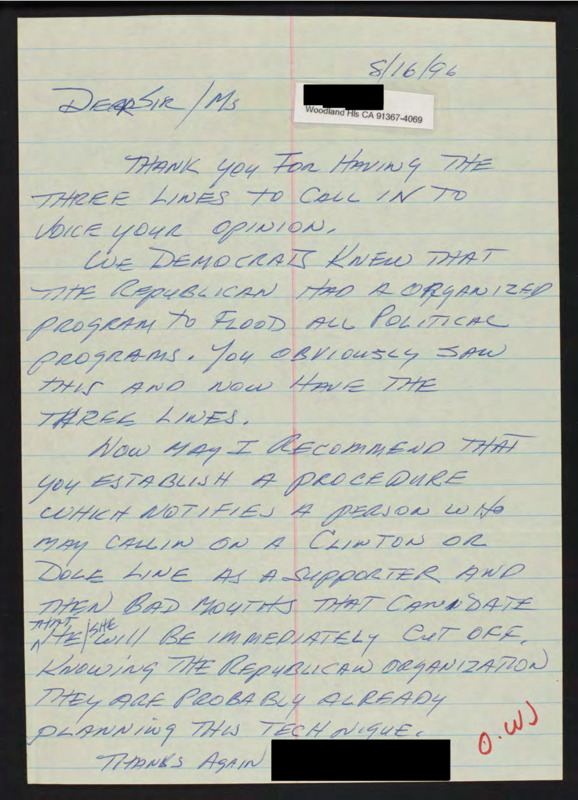 8/16/96
Dear Sir/Ms
Woodland Hls CA 91367-4069
THANK YOU FOR HAVING THE
THREE LINES TO CALL IN TO
VOICE YOUR OPINION.
WE DEMOCRATS KNEW THAT
THE REPUBLICAN HAD A ORGANIZED
PROGRAM TO FLOOD ALL POLITICAL
PROGRAMS. YOU OBVIOUSLY SAW
THIS AND NOW HAVE THE
THREE LINES.
NOW MAY I RECOMMEND THAT
YOU ESTABLISH A PROCEDURE
WHICH NOTIFIES A PERSON WHO
MAY CALL IN ON A CLINTON OR
DOLE LINE AS A SUPPORTER AND
THEN BAD MOUTHS THAT CANDIDATE
THAT HE/SHE WILL BE IMMEDIATELY CUT OFF.
KNOWING THE REPUBLICAN ORGANIZATION
THEY ARE PROBABLY ALREADY
PLANNING THIS TECHNIQUE.
THANKS AGAIN